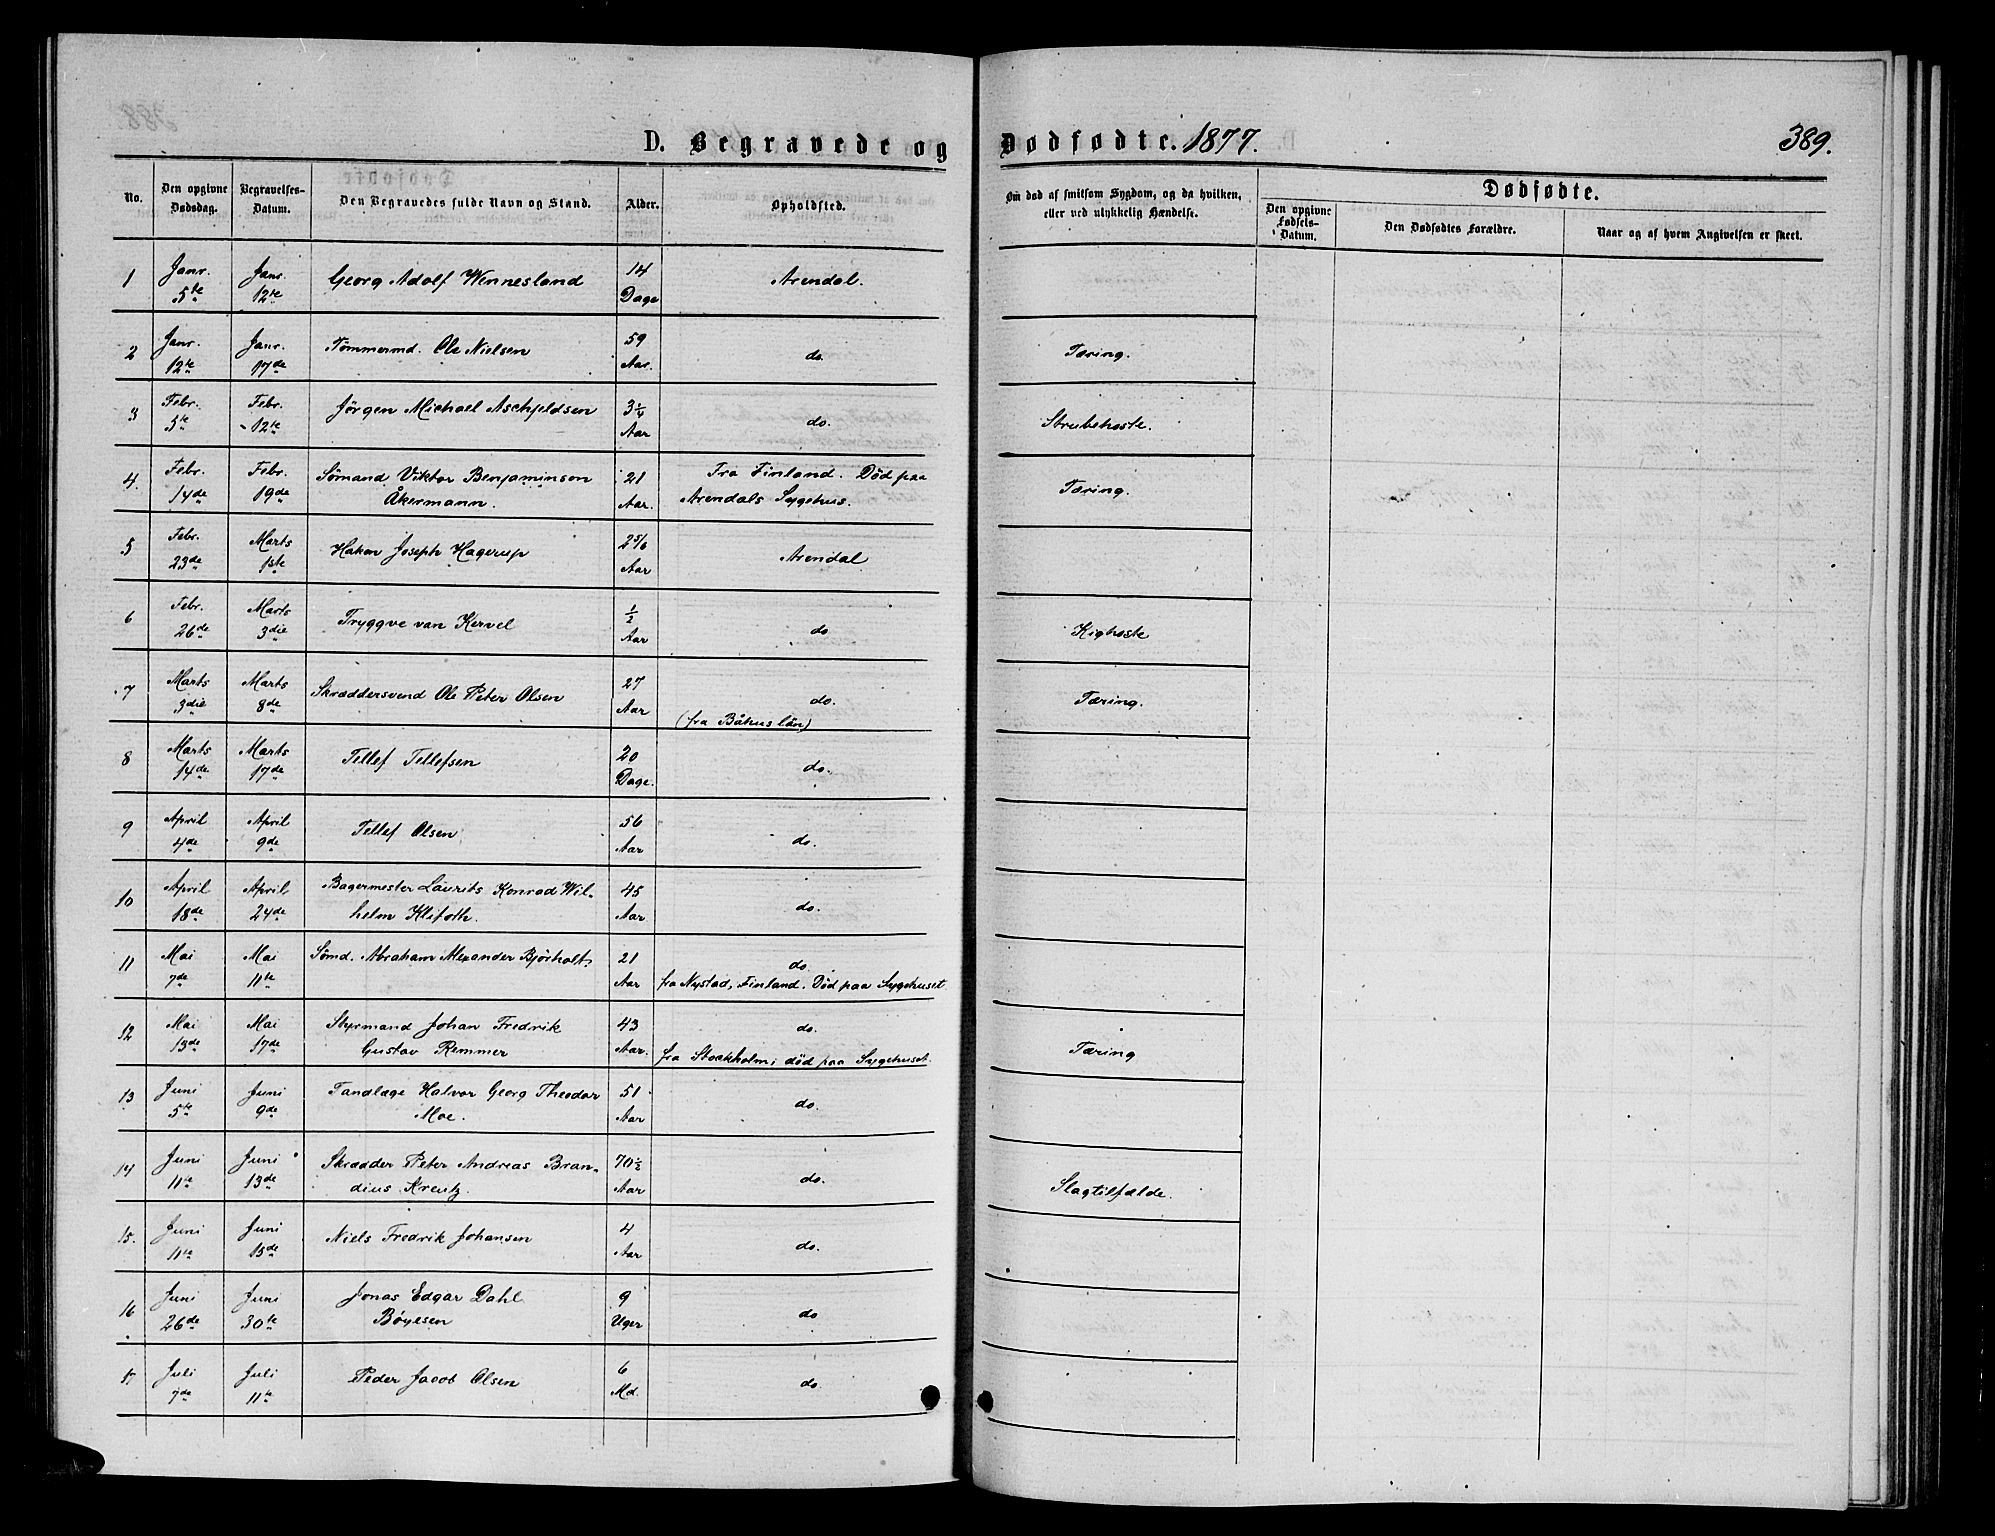 D. Begravede og Dødfødte. 1877. 389.
No. | Den opgivne Dødsdag. | Begravelses-Datum. | Den Begravedes fulde Navn og Stand. | Alder. | Opholdsted. | Om død af smitsom Sygdom, og da hvilken, eller ved ulykkelig Hændelse. | Dødfødte. | Den opgivne Fødsels-Datum. | Den Dødfødtes Forældre. | Naar og af hvem Angivelsen er skeet.
1 | Janr. 5te | Janr. 12te | Georg Adolf Wennesland | 14 Dage | Arendal.
2 | Janr. 12te | Janr. 17de | Tømmermd. Ole Nielsen | 59 Aar. | do. | Tæring.
3 | Febr. 5te | Febr. 12te | Jørgen Michael Aschjeldsen | 3¼ Aar | do. | Strubehoste.
4. | Febr. 14de | Febr. 19de | Sømand Viktor Benjaminson Åkermann. | 21 Aar. | Fra Finland. Död paa Arendals Sygehus. | Tæring.
5 | Febr. 23de | Marts 1ste | Haken Joseph Hagerup | 2 5/6 Aar | Arendal
6 | Febr. 26de | Marts 3die | Tryggve van Kervel | ½ Aar | do | Kighoste
7 | Marts 3die | Marts 8de | Skræddersvend Ole Peter Olsen | 27 Aar | do. (fra Båhus län) | Tæring.
8 | Marts 14de | Marts 17de | Tellef Tellefsen | 20 Dage. | do.
9 | April 4de | April 9de | Tellef Olsen | 56 Aar | do.
10 | April 18de | April 24de | Bagermester Laurits Konrad Wilhelm Klifoth. | 45 Aar | do.
11 | Mai 7de | Mai 11te | Sömd. Abraham Alexander Bjørholt. | 21 Aar | do. fra Nystad, Finland. Död paa Sygehuset
12 | Mai 13de | Mai 17de | Styrmand Johan Fredrik Gustav Remmer | 43 Aar. | do. fra Stockholm; död paa Sygehuset. | Tæring
13 | Juni 5te | Juni 9de | Tandlæge Halvor Georg Theodor Moe. | 51 Aar | do.
14 | Juni 11te | Juni 13de | Skrædder Peter Andreas Brandius Kreutz. | 70½ Aar | do. | Slagtilfælde.
15. | Juni 11te | Juni 15de | Niels Fredrik Johansen | 4 Aar | do.
16 | Juni 26de | Juni 30te | Jonas Edgar Dahl Böyesen | 9 Uger | do
17 | Juli 7de | Juli 11te | Peder Jacob Olsen | 6 Md. | do.